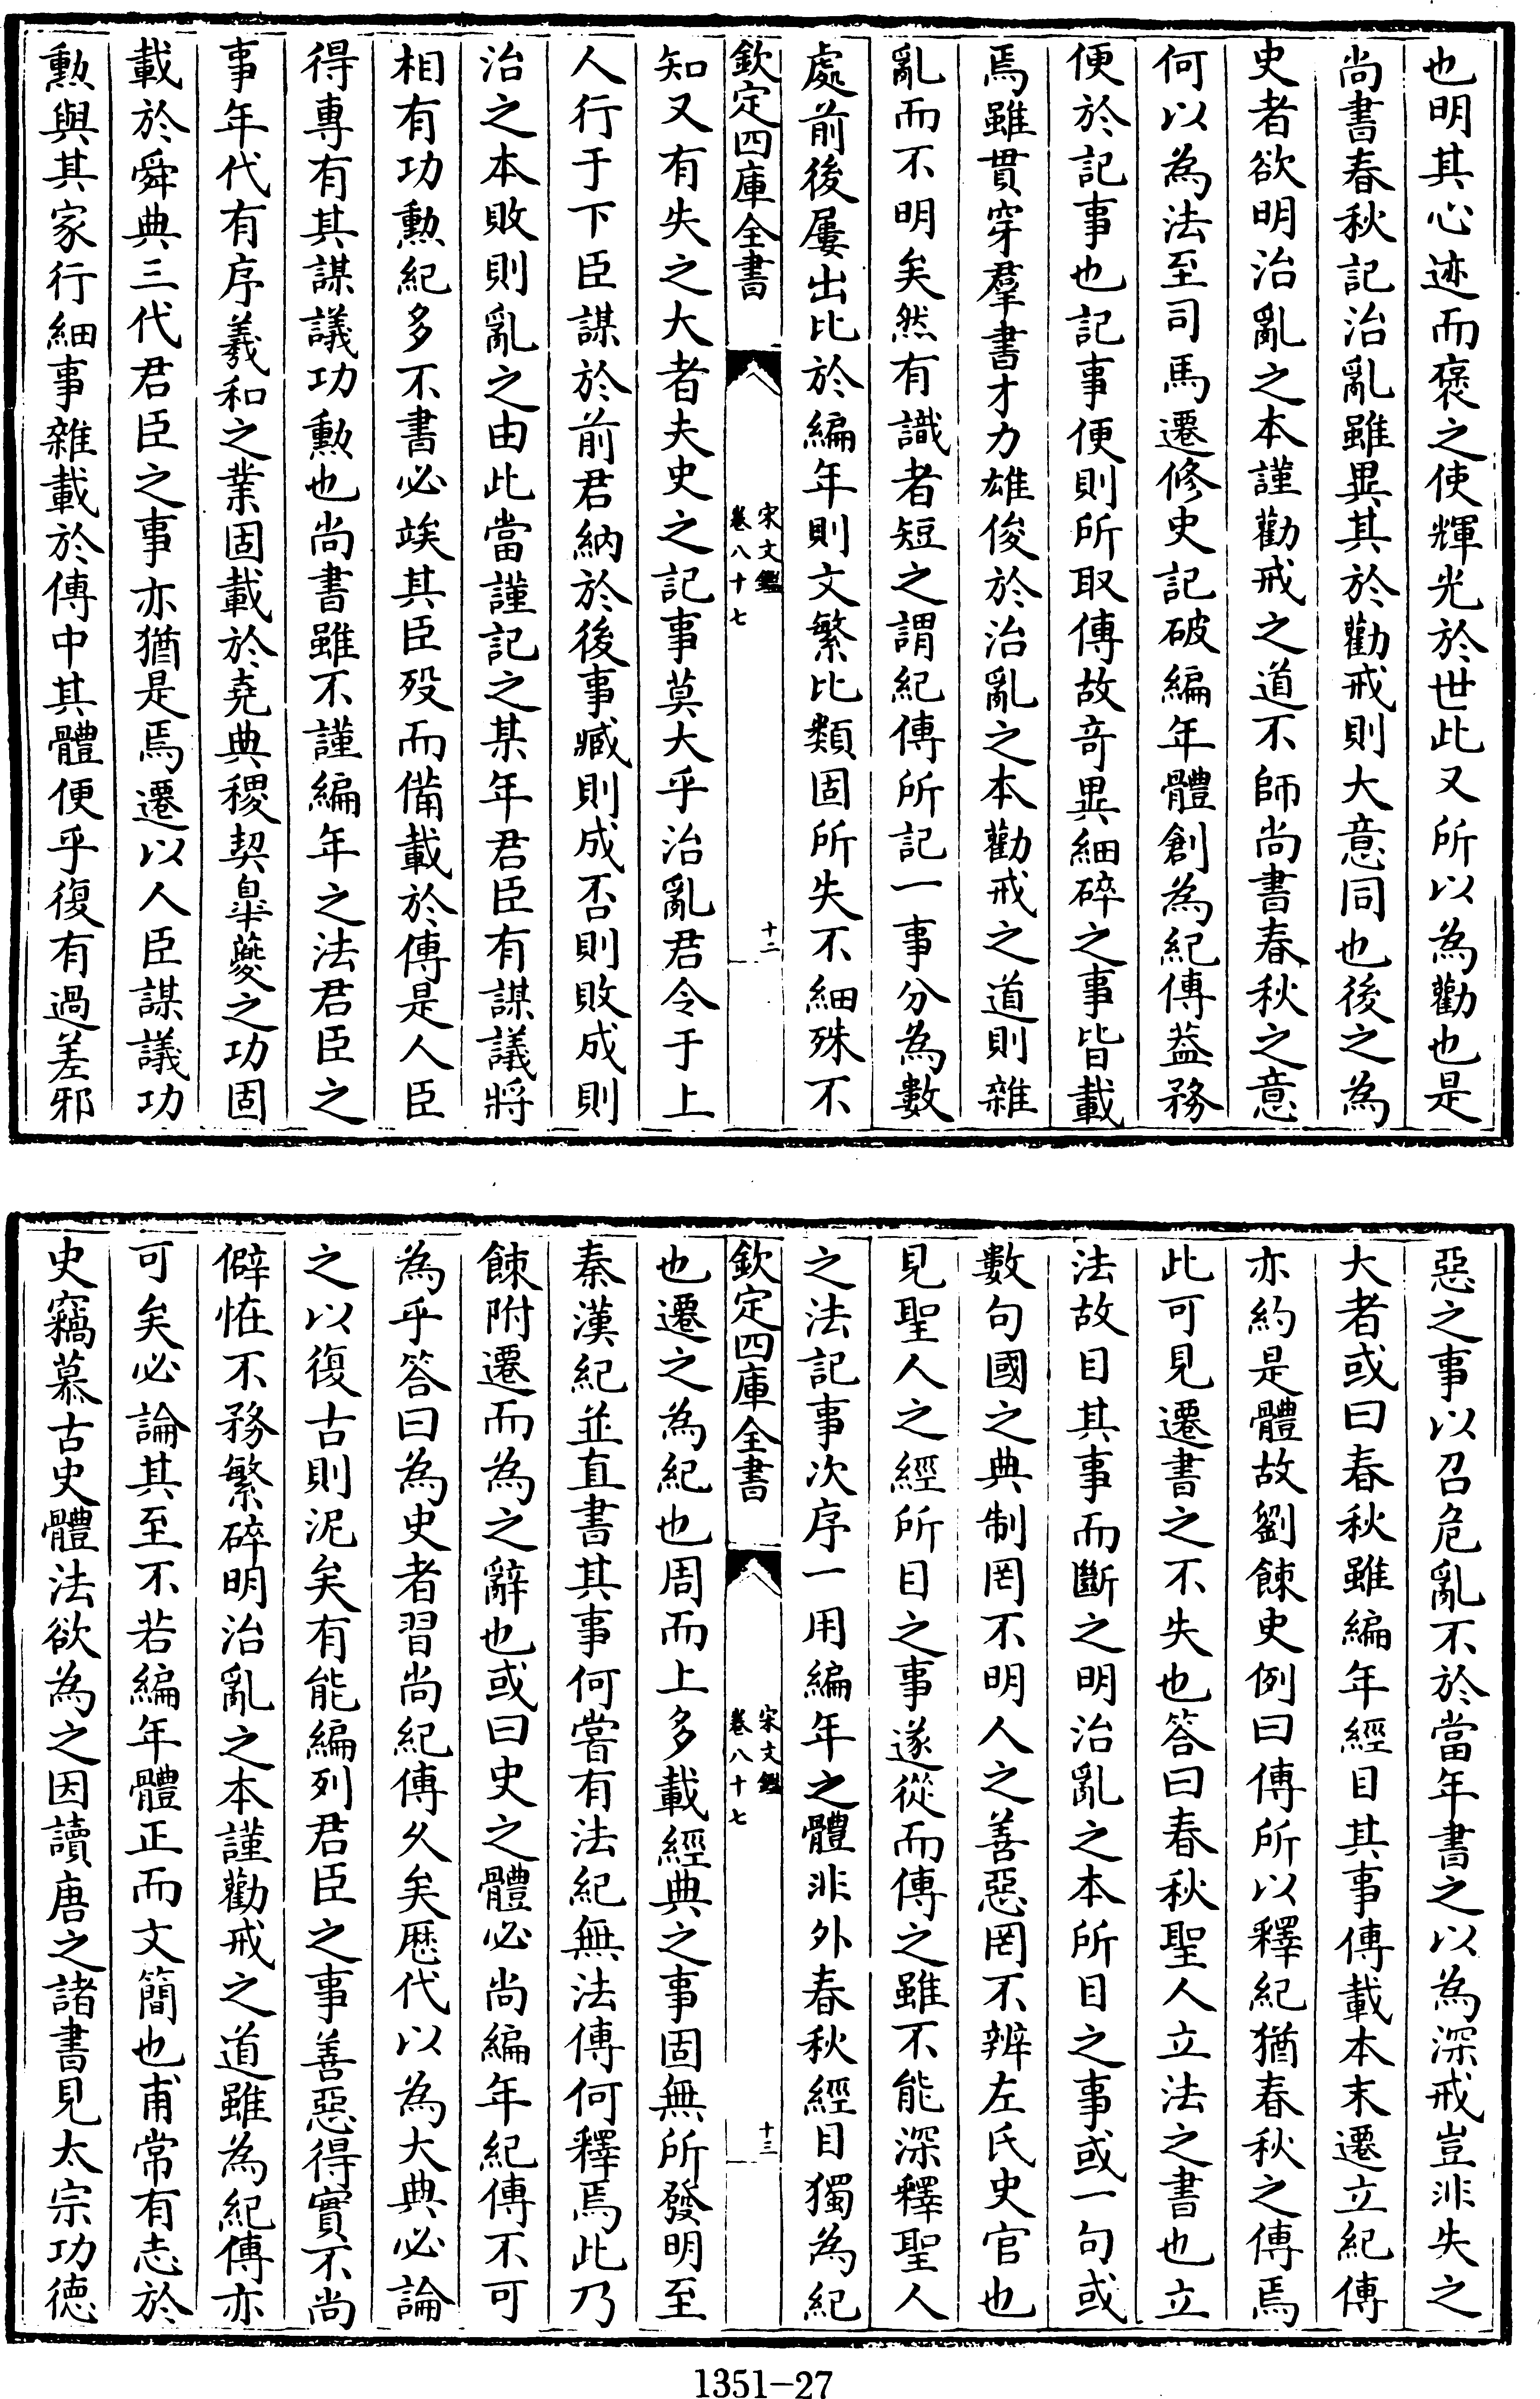 也明其心迹而褒之使輝光於世此又所以為勸也是
尚書春秋記治亂雖異其於勸戒則大意同也後之為
史者欲明治亂之本謹勸戒之道不師尚書春秋之意
何以為法至司馬遷修史記破編年體創為紀傳葢務
便於記事也記事便則所取傳故竒異細碎之事皆載
焉雖貫穿羣書才力雄俊於治亂之本勸戒之道則雜
亂而不明矣然有識者短之謂紀傳所記一事分為數
處前後屢出比於編年則文繁比類固所失不細殊不
欽定四庫全書
宋文鑑
卷八十七
十二
知又有失之大者夫史之記事莫大乎治亂君令于上
人行于下臣謀於前君納於後事臧則成否則敗成則
治之本敗則亂之由此當謹記之某年君臣有謀議將
相有功勲紀多不書必竢其臣殁而備載於傳是人臣
得專有其謀議功勲也尚書雖不謹編年之法君臣之
事年代有序羲和之業固載於堯典稷契臯夔之功固
載於舜典三代君臣之事亦猶是焉遷以人臣謀議功
勲與其家行細事雜載於傳中其體便乎復有過差邪
惡之事以召危亂不於當年書之以為深戒豈非失之
大者或曰春秋雖編年經目其事傳載本末遷立紀傳
亦約是體故劉餗史例曰傳所以釋紀猶春秋之傳焉
此可見遷書之不失也答曰春秋聖人立法之書也立
法故目其事而斷之明治亂之本所目之事或一句或
數句國之典制罔不明人之善惡罔不辨左氏史官也
見聖人之經所目之事遂從而傳之雖不能深釋聖人
之法記事次序一用編年之體非外春秋經目獨為紀
欽定四庫全書
宋文鑑
卷八十七
十三
也遷之為紀也周而上多載經典之事固無所發明至
秦漢紀並直書其事何嘗有法紀無法傳何釋焉此乃
餗附遷而為之辭也或曰史之體必尚編年紀傳不可
為乎答曰為史者習尚紀傳乆矣厯代以為大典必論
之以復古則泥矣有能編列君臣之事善惡得實不尚
僻怪不務繁碎明治亂之本謹勸戒之道雖為紀傳亦
可矣必論其至不若編年體正而文簡也甫常有志於
史竊慕古史體法欲為之因讀唐之諸書見太宗功德
1351-27